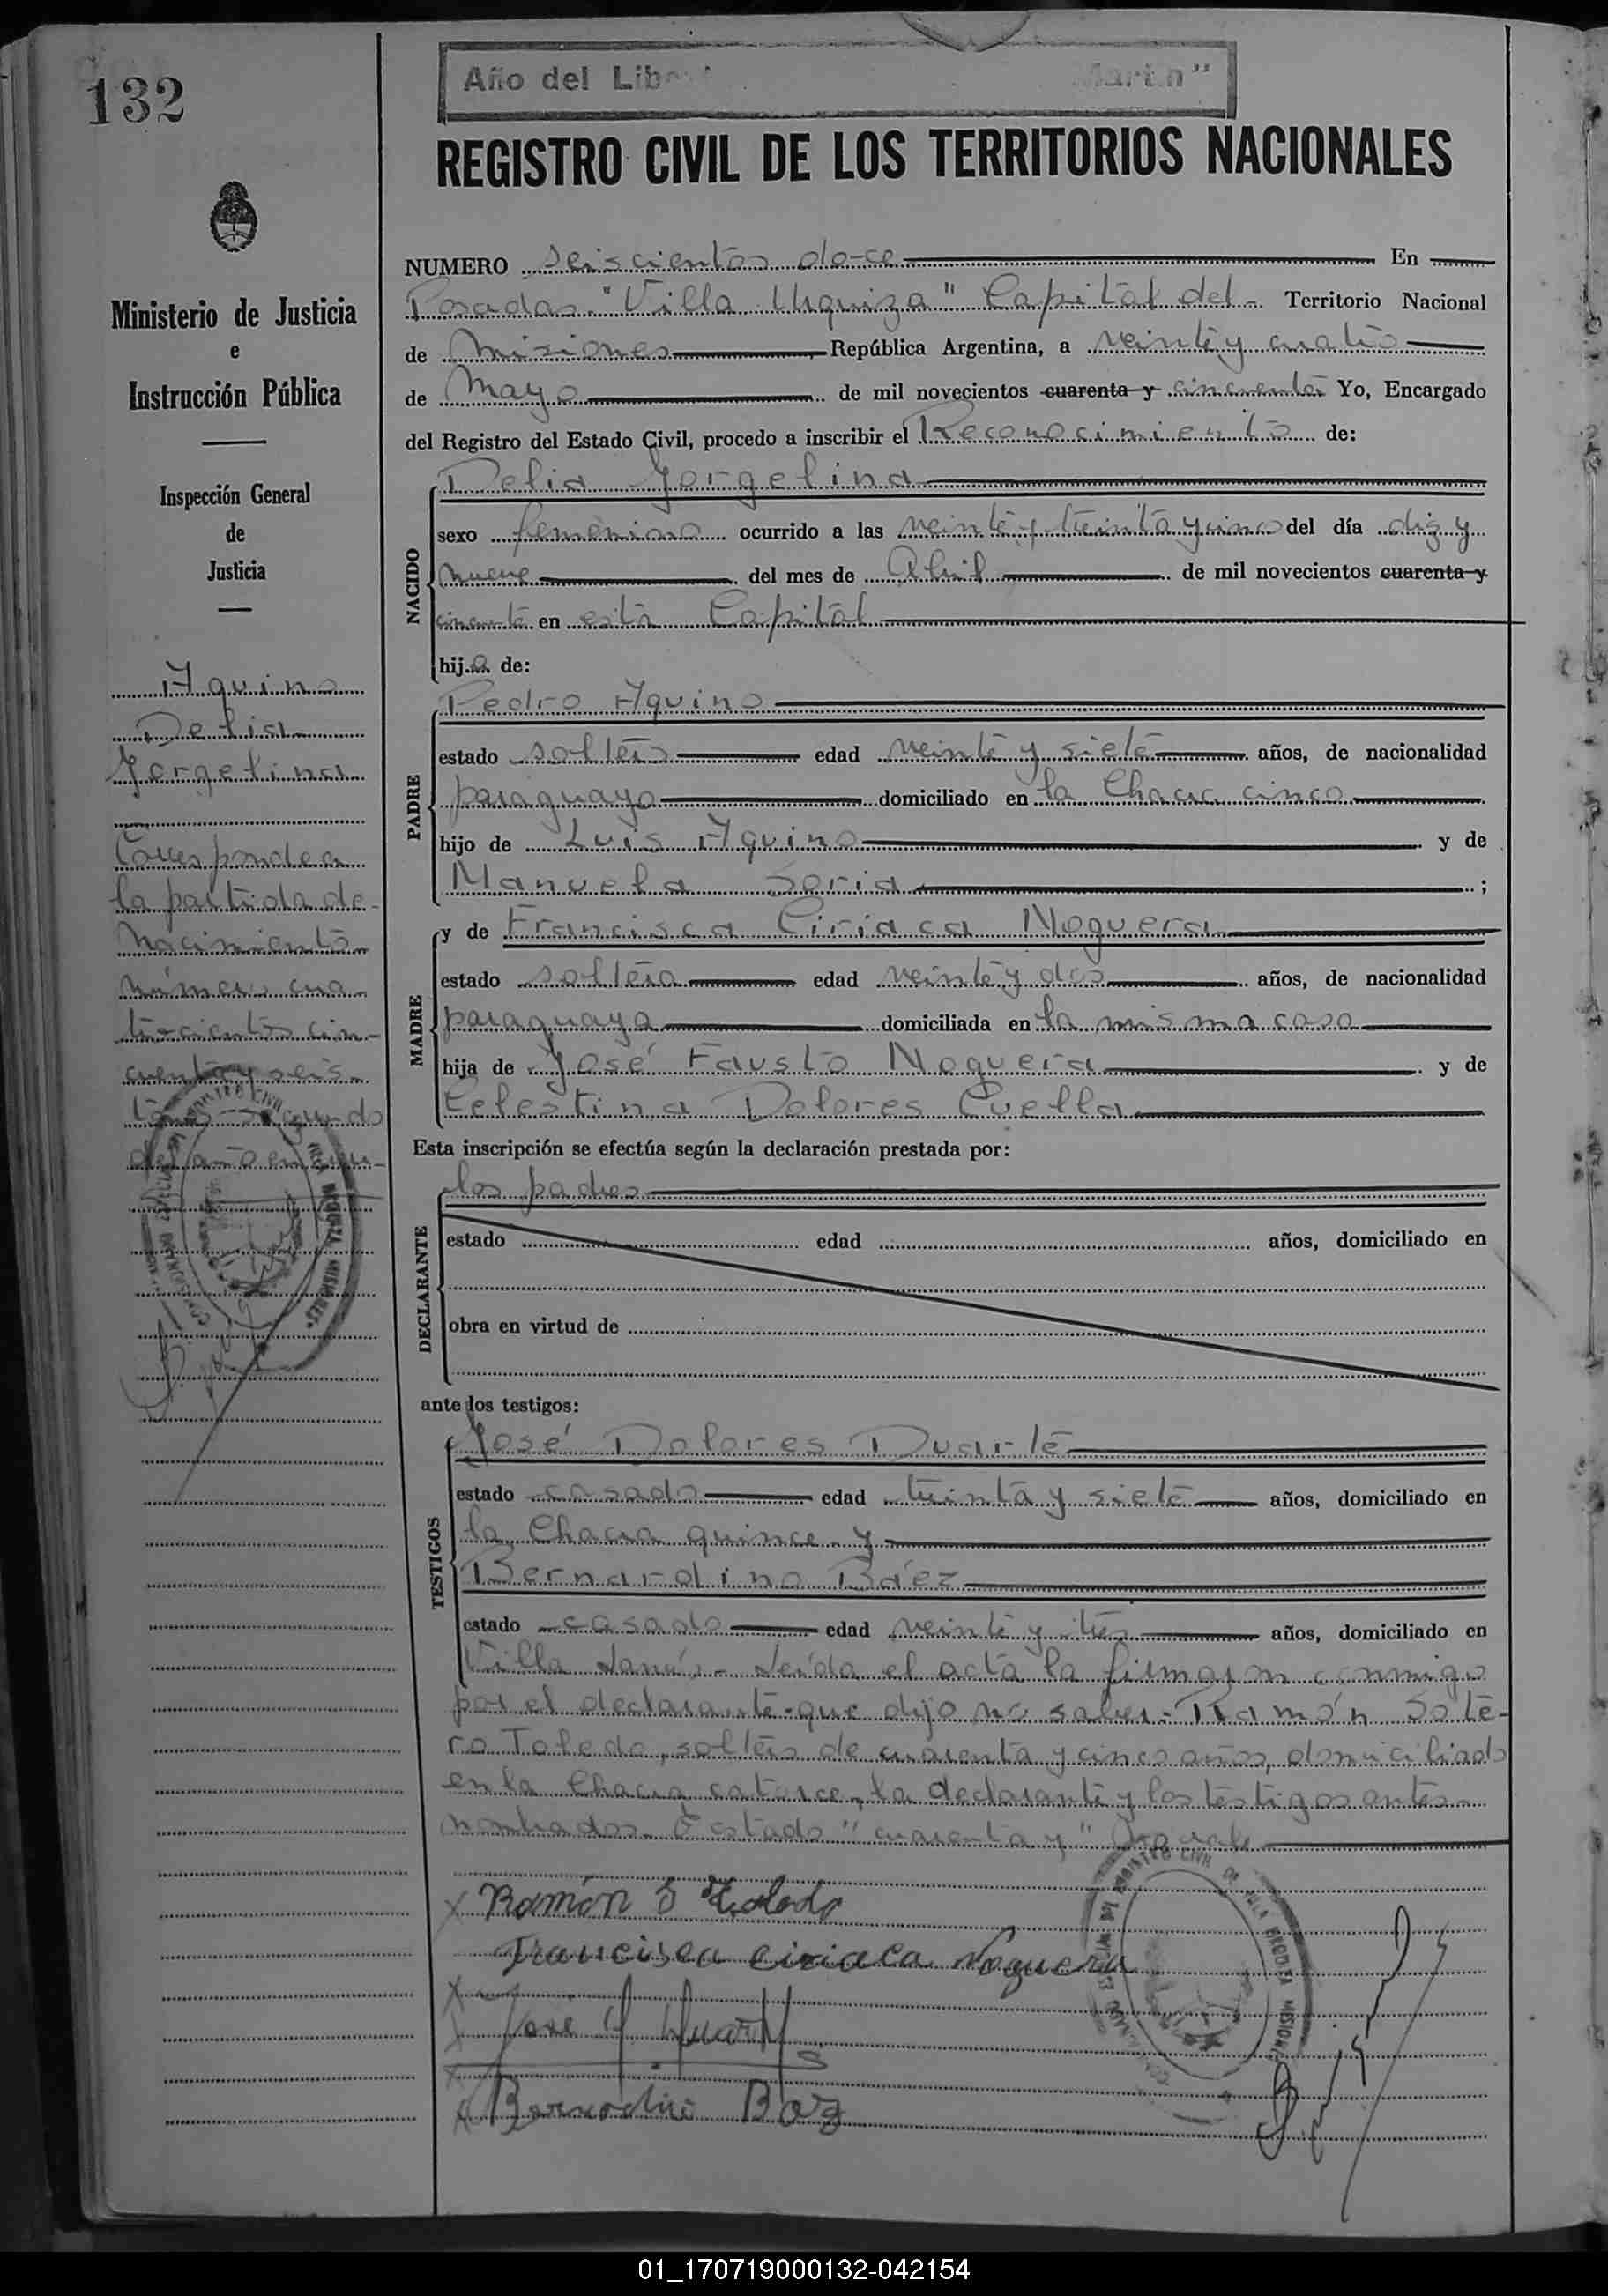 132
Año del Lib Martín"
REGISTRO CIVIL DE LOS TERRITORIOS NACIONALES
Ministerio de Justicia
e
Instrucción Pública
Inspección General
de
Justicia
Aquino
Delia
Jorgelina
Corresponde a
la partida de
Nacimiento
número cua-
trocientos cin-
cuenta y seis-
tomo segundo
del año en cur-
NUMERO seiscientos doce En
Posadas "Villa Urquiza" Capital del Territorio Nacional
de Misiones República Argentina, a veinte y cuatro
de Mayo de mil novecientos cuarenta y cincuenta Yo, Encargado
del Registro del Estado Civil, procedo a inscribir el Reconocimiento de:
NACIDO
Delia Jorgelina
sexo femenino ocurrido a las veinte y treinta y cinco del día diez y
nueve del mes de Abril de mil novecientos cuarenta y
cincuenta en esta Capital
hija de:
PADRE
Pedro Aquino
estado soltero edad veinte y siete años, de nacionalidad
paraguayo domiciliado en la Chacra cinco
hijo de Luis Aquino y de
Manuela Soria ;
MADRE
y de Francisca Ciriaca Noguera
estado soltera edad veinte y dos años, de nacionalidad
paraguaya domiciliada en la misma casa
hija de José Fausto Noguera y de
Celestina Dolores Cuella
Esta inscripción se efectúa según la declaración prestada por:
DECLARANTE
los padres
estado edad años, domiciliado en
obra en virtud de
ante los testigos:
TESTIGOS
José Dolores Duarte
estado casado edad treinta y siete años, domiciliado en
la Chacra quince y
Bernardino Báez
estado casado edad veinte y tres años, domiciliado en
Villa Lanús - Leída el acta la firmaron conmigo
por el declarante que dijo no saber - Ramón Sote-
ro Toledo, soltero de cuarenta y cinco años, domiciliado
en la Chacra catorce, la declarante y los testigos antes-
nombrados - testado "cuarenta y"
Ramón S Toledo
Francisca Ciriaca Noguera
José Duarte
Bernardino Baz
01_170719000132-042154